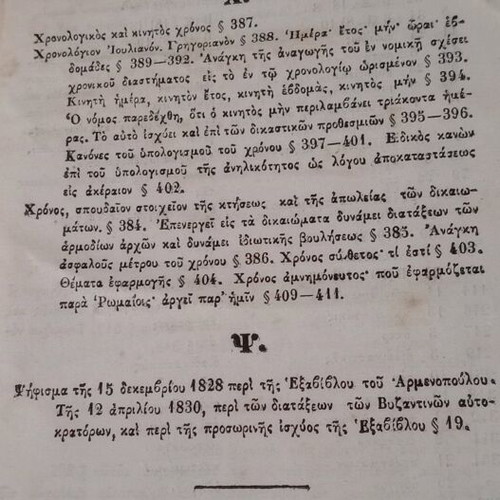 Χ.
Χρονολογικὸς καὶ κινητὸς χρόνος § 387.
Χρονολόγιον Ἰουλιανόν. Γρηγοριανὸν § 388. Ἡμέρα· ἔτος· μήν· ὧραι· ἑβ-
δομάδες § 389—392. Ἀνάγκη τῆς ἀναγωγῆς τοῦ ἐν νομικῇ σχέσει
χρονικοῦ διαστήματος εἰς τὸ ἐν τῷ χρονολογίῳ ὡρισμένον § 393.
Κινητὴ ἡμέρα, κινητὸν ἔτος, κινητὴ ἑβδομὰς, κινητὸς μὴν § 394.
Ὁ νόμος παρεδέχθη, ὅτι ὁ κινητὸς μὴν περιλαμβάνει τριάκοντα ἡμέ-
ρας. Τὸ αὐτὸ ἰσχύει καὶ ἐπὶ τῶν δικαστικῶν προθεσμιῶν § 395—396.
Κανόνες τοῦ ὑπολογισμοῦ τοῦ χρόνου § 397—401. Εἰδικὸς κανὼν
ἐπὶ τοῦ ὑπολογισμοῦ τῆς ἀνηλικότητος ὡς λόγου ἀποκαταστάσεως
εἰς ἀκέραιον § 402.
Χρόνος, σπουδαῖον στοιχεῖον τῆς κτήσεως καὶ τῆς ἀπωλείας τῶν δικαιω-
μάτων. § 384. Ἐπενεργεῖ εἰς τὰ δικαιώματα δυνάμει διατάξεων τῶν
ἁρμοδίων ἀρχῶν καὶ δυνάμει ἰδιωτικῆς βουλήσεως § 385. Ἀνάγκη
ἀσφαλοῦς μέτρου τοῦ χρόνου § 386. Χρόνος σύνθετος· τί ἐστί § 403.
Θέματα ἐφαρμογῆς § 404. Χρόνος ἀμνημόνευτος· ποῦ ἐφαρμόζεται
παρὰ Ῥωμαίοις· ἀργεῖ παρ' ἡμῖν § 409—411.
Ψ.
Ψήφισμα τῆς 15 δεκεμβρίου 1828 περὶ τῆς Ἑξαβίβλου τοῦ Ἁρμενοπούλου.
Τῆς 12 ἀπριλίου 1830, περὶ τῶν διατάξεων τῶν Βυζαντινῶν αὐτο-
κρατόρων, καὶ περὶ τῆς προσωρινῆς ἰσχύος τῆς Ἑξαβίβλου § 19.